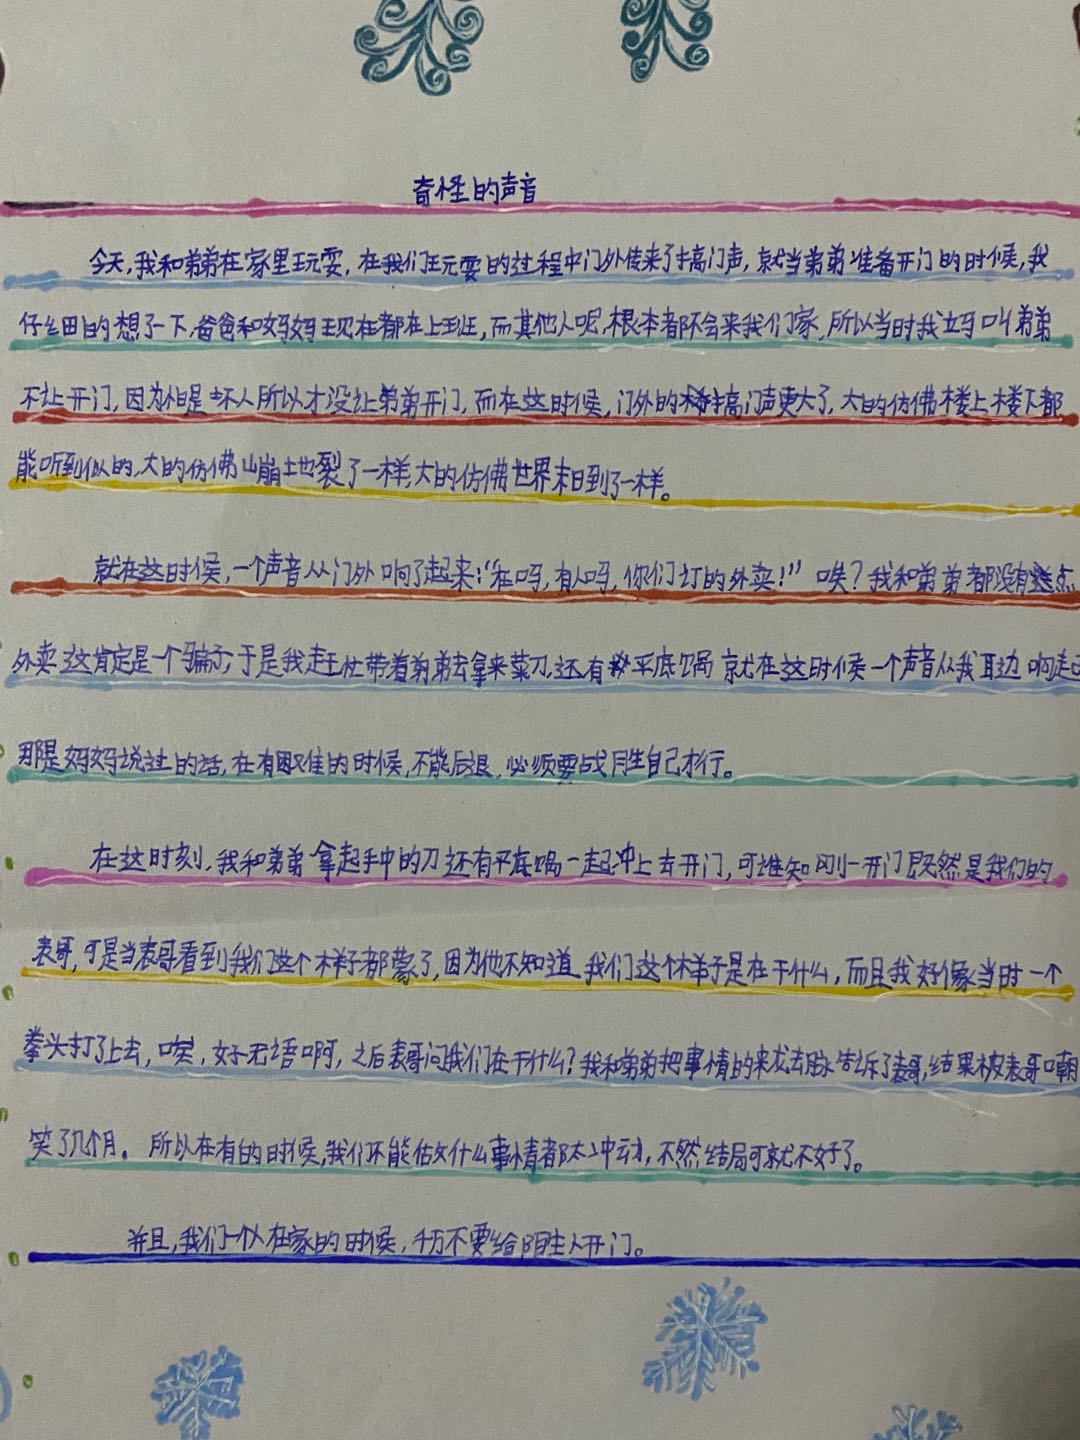 奇怪的声音
今天，我和弟弟在家里玩耍，在我们玩耍的过程中门外传来了敲门声，就当弟弟准备开门的时候，我
仔细的想了一下，爸爸和妈妈现在都在上班，而其他人呢，根本都不会来我们家，所以当时我立马叫弟弟
不让开门，因为怕是坏人所以才没让弟弟开门，而在这时候，门外的敲门声更大了，大的仿佛楼上楼下都
能听到似的，大的仿佛山崩土地裂了一样，大的仿佛世界末日到了一样。
就在这时候，一个声音从门外响了起来：“在吗，有人吗，你们订的外卖！”唉？我和弟弟都没有点
外卖这肯定是一个骗子，于是我赶忙带着弟弟去拿来菜刀还有平底锅就在这时候一个声音从我耳边响起
那是妈妈说过的话，在有困难的时候，不能后退，必须要战胜自己才行。
在这时刻，我和弟弟拿起手中的刀还有平底锅一起冲上去开门，可谁知刚一开门既然是我们的
表哥，可是当表哥看到我们这个样子都蒙了，因为他不知道我们这个样子是在干什么，而且我好像当时一个
拳头打了上去，唉，好无语啊，之后表哥问我们在干什么？我和弟弟把事情的来龙去脉告诉了表哥，结果被表哥嘲
笑了几个月。所以在有的时候，我们不能做什么事情都太冲动，不然结局可就不好了。
并且，我们一个人在家的时候，千万不要给陌生人开门。